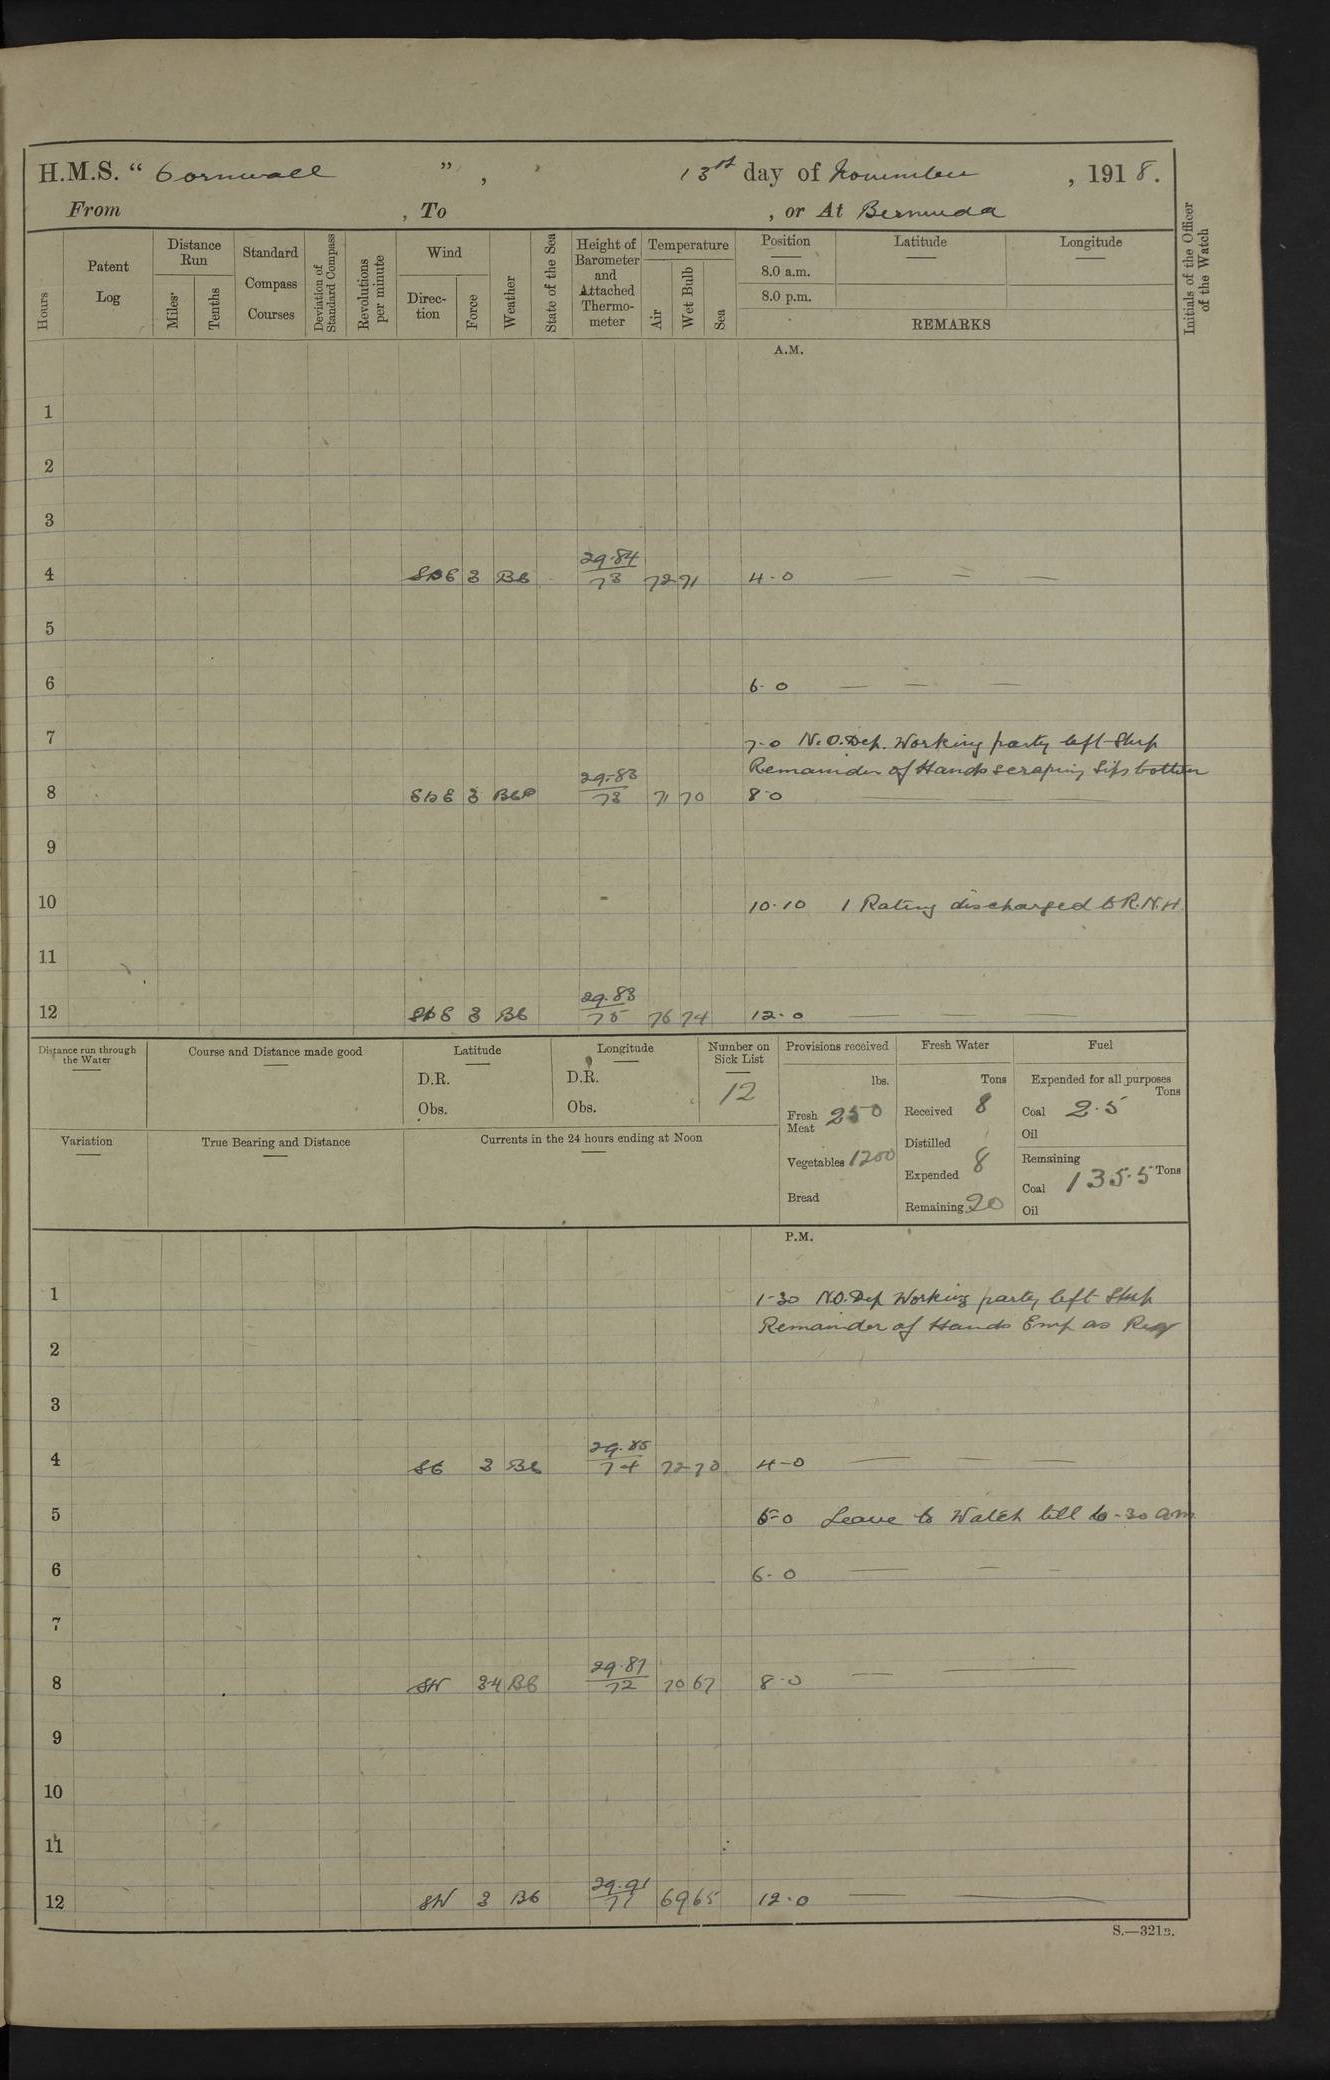 H.M.S. “ Cornwall ”, 13th day of November, 1918.
From , To , or At Bermuda
Hours
Patent Log
Distance Run
Miles
Tenths
Standard Compass Courses
Deviation of Standard Compass
Revolutions per minute
Wind
Direction
Force
Weather
State of the Sea
Height of Barometer and Attached Thermometer
Temperature
Air
Wet Bulb
Sea
Position
8.0 a.m.
8.0 p.m.
Latitude
Longitude
REMARKS
Initials of the Officer of the Watch
A.M.
1
2
3
29.84
4 SbE 3 Bc 73 72 71 4-0 — — —
5
6 6-0 — — —
7 7-0 N.O. Dep. Working party left Ship
Remainder of Hands scraping Sips bottom
29.83
8 SbE 3 BcP 73 71 70 8-0 — — —
9
10 10.10 1 Rating discharged to R.N.H.
11
29.83
12 SbE 3 Bc 75 76 74 12-0 — — —
Distance run through the Water
Course and Distance made good
Latitude
D.R.
Obs.
Longitude
D.R.
Obs.
Number on Sick List
12
Provisions received
lbs.
Fresh Meat 250
Vegetables 1200
Bread
Fresh Water
Tons
Received 8
Distilled
Expended 8
Remaining 20
Fuel
Expended for all purposes
Tons
Coal 2.5
Oil
Remaining
Coal 135.5 Tons
Oil
Variation
True Bearing and Distance
Currents in the 24 hours ending at Noon
P.M.
1 1-30 N.O. Dep Working party left Ship
Remainder of Hands Emp as Req
2
3
29.85
4 SE 3 Bc 74 72 70 4-0 — — —
5 5-0 Leave to Watch till 6-30 am
6 6-0 — — —
7
29.87
8 SW 3-4 Bc 72 70 67 8-0 — —
9
10
11
29.91
12 SW 3 Bc 71 69 65 12-0 — —
S.—321B.